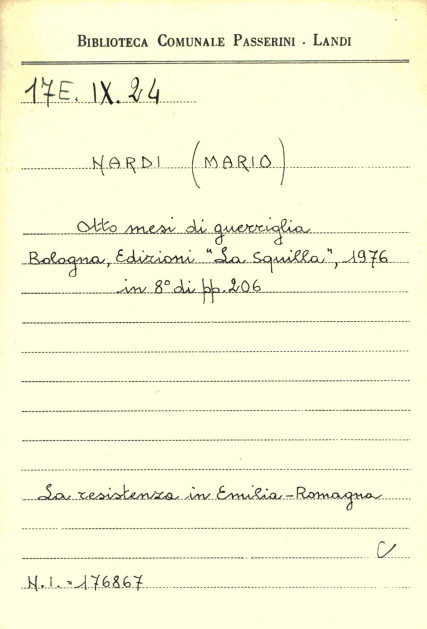 BIBLIOTECA COMUNALE PASSERINI - LANDI
17E. IX. 24
NARDI (MARIO)
Otto mesi di guerriglia
Bologna, Edizioni "La Squilla", 1976
in 8° di pp. 206
La resistenza in Emilia-Romagna
C
N.I. = 176867